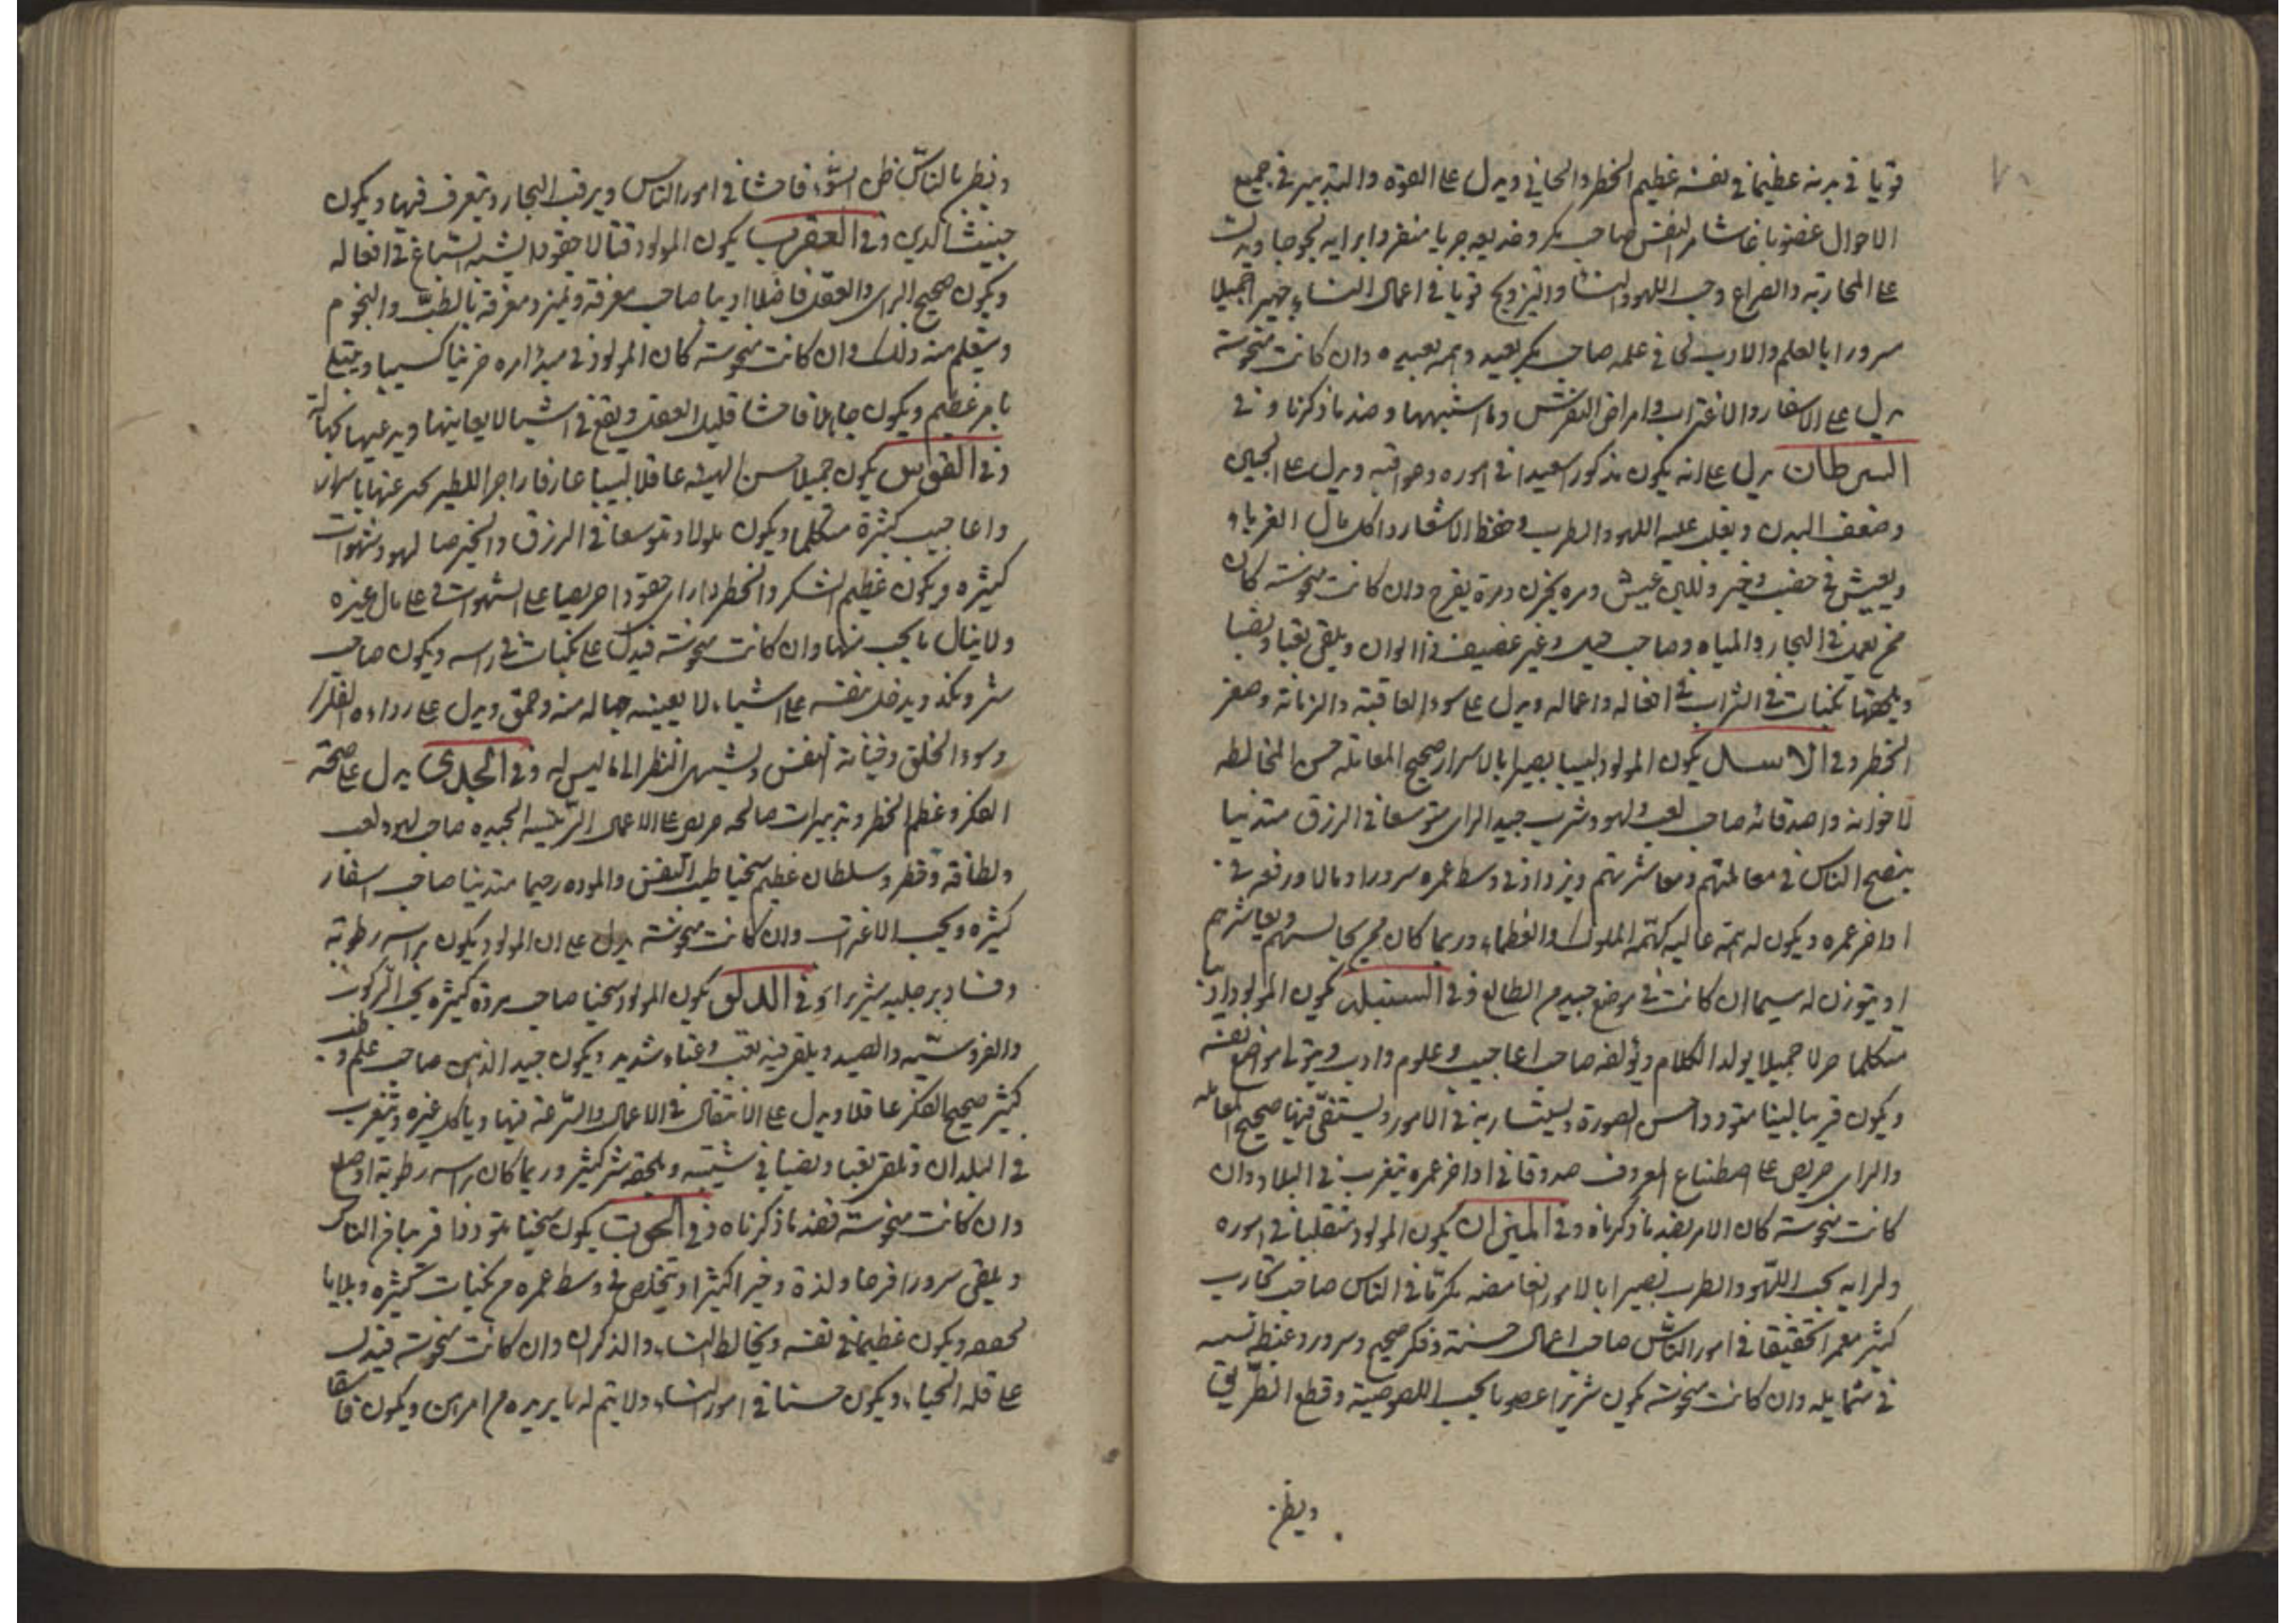 قويا في بدنه عظيما في نفسه عظيم الخطر والجاني ويدل على القوة والتدبير في جميع
الاحوال غضوبا غاشم النفس صاحب مكر وخديعه جريا منفردا برايه لجوجا ويدل
على المحاربة والصراع وحب اللهو والنساء والتزويج قويا في اعمال النساء جميلا
سرورا بالعلم والادب في علمه صاحب مكر بعيد وهمه بعيده وان كانت منحوسة
يدل على الاسفار والاغتراب وامراض النقرس وما اشبهها وضد ما ذكرنا وفي
السرطان يدل على انه يكون مذكورا سعيدا في اموره وعواقبه ويدل على الجبن
وضعف البدن ويغلب عليه اللهو والطرب وحفظ الاشعار واكل مال الغرباء
ويعيش في خصب وخير ولين عيش ومره يحزن ومرة يفرح وان كانت منحوسة كان
ممن يعمل في البحار والمياه وصاحب حيل وغير عفيف ويلقى تعبا ونصبا
ويلحقها نكبات في افعاله واعماله ويدل على سوء العاقبة والزمانة وصغر
الخطر وفي الاسد يكون المولود لبيبا بصيرا بالاسرار صحيح المعامله حسن المخالطه
لاخوانه واصدقائه صاحب لعب ولهو وشرب جيد الراي متوسعا في الرزق متدينا
ينصح الناس في معاملتهم ومعاشرتهم ويزداد في وسط عمره سرورا ومالا ورفعه في
اواخر عمره ويكون له همة عاليه كهمّة الملوك والعظماء وربما كان ممن يجالسهم ويعاشرهم
سيما ان كانت في موضع جيد من الطالع وفي السنبلة يكون المولود اديبا
متكلما جميلا يولد الكلام ويؤلفه صاحب اعاجيب وعلوم وادب
ويكون قريبا لينا متوددا حسن الصورة يستشار به في الامور ويستقصى فيها صحيح المعامله
والراي حريص على اصطناع المعروف صدوقا في اواخر عمره يتغرب في البلاد وان
كانت منحوسة كان الامر بضد ما ذكرناه وفي الميزان يكون المولود متقلبا في اموره
ولرايه يحب اللهو والطرب بصيرا بالامور الغامضه مكرما في الناس صاحب تجارب
كثير تحقيقا في امور الناس صاحب اعمال حسنة وفكر صحيح وسرور وغبطة
في وان كانت منحوسة يكون شريرا يحب اللصوصية وقطع الطريق
ويظن
ويظن بالناس ظن السّوء فاحشا في امور الناس ويركب البحار ويتعرف فيها ويكون
خبيث الدين وفي العقرب يكون المولود قتالا حقودا يشبه السباع في افعاله
ويكون صحيح الراي والعقل فاضلا اديبا صاحب معرفة وتميز ومعرفة بالطبّ والنجوم
ويتعلم منه ذلك وان كانت منحوسة كان المولود في حزينا ويبتلى
بامر عظيم ويكون جاهلا فاحشا قليل العقل ويقع في اشيا لا يعاينها ويدعيها
وفي القوس يكون جميلا حسن الهيئه عاقلا لبيبا عارفا
واعاجيب كثيرة متكلما ويكون ملولا ومتوسعا في الرزق والخير صاحب لهو وشهوات
كثيره ويكون عظيم الشكر والخطر حقودا حريصا على الشهوات وعلى مال غيره
ولا ينال ما يحب منها وان كانت منحوسة فيدل على نكبات في راسه ويكون صاحب
شر ونكد ويدخل نفسه على اشياء لا يعينه جهالة منه وحمق ويدل على رداءة الفكر
وسوء الخلق وخيانة النفس ويشتهي النظر الى ما ليس له وفي الجدي يدل على صحّة
الفكر وعظم الخطر وتدبيرات صالحه حريص على الاعمال الرئيسه الجيده صاحب لهو ولعب
ولطافة وخطر وسلطان عظيم سخيا طيب النفس والموده رحيما متدينا صاحب اسفار
كثيره ويحب الاغتراب وان كانت منحوسة يدل على ان المولود يكون براسه رطوبة
وفساد برجليه شريرا وفي الدلو يكون المولود سخيا صاحب مروة كثيره يحب الركوب
والفروسيه والصيد ويلقى فيه تعب وعناء شديد ويكون جيد الذهن صاحب علم و
كثير صحيح الفكر عاقلا ويدل على الانتقال في الاعمال والسّرعة فيها وياكل غيره ويتغرب
في البلدان ويلقى تعبا ونصبا في شيبته ويلحقه شر كثير وربما كان براسه رطوبة او صلع
وان كانت منحوسة فضد ما ذكرناه وفي الحوت يكون سخيا متوددا قريبا من الناس
ويلقى سرورا فرحا ولذة وخيرا كثيرا ويتخلص في وسط عمره من نكبات كثيره وبلايا
ويكون عظيما في نفسه ويخالط النساء والذكران وان كانت منحوسة فيدل
على قلة الحياء ويكون حسنا في امور النساء ولا يتم له ما يريده من امر ويكون فاسقا